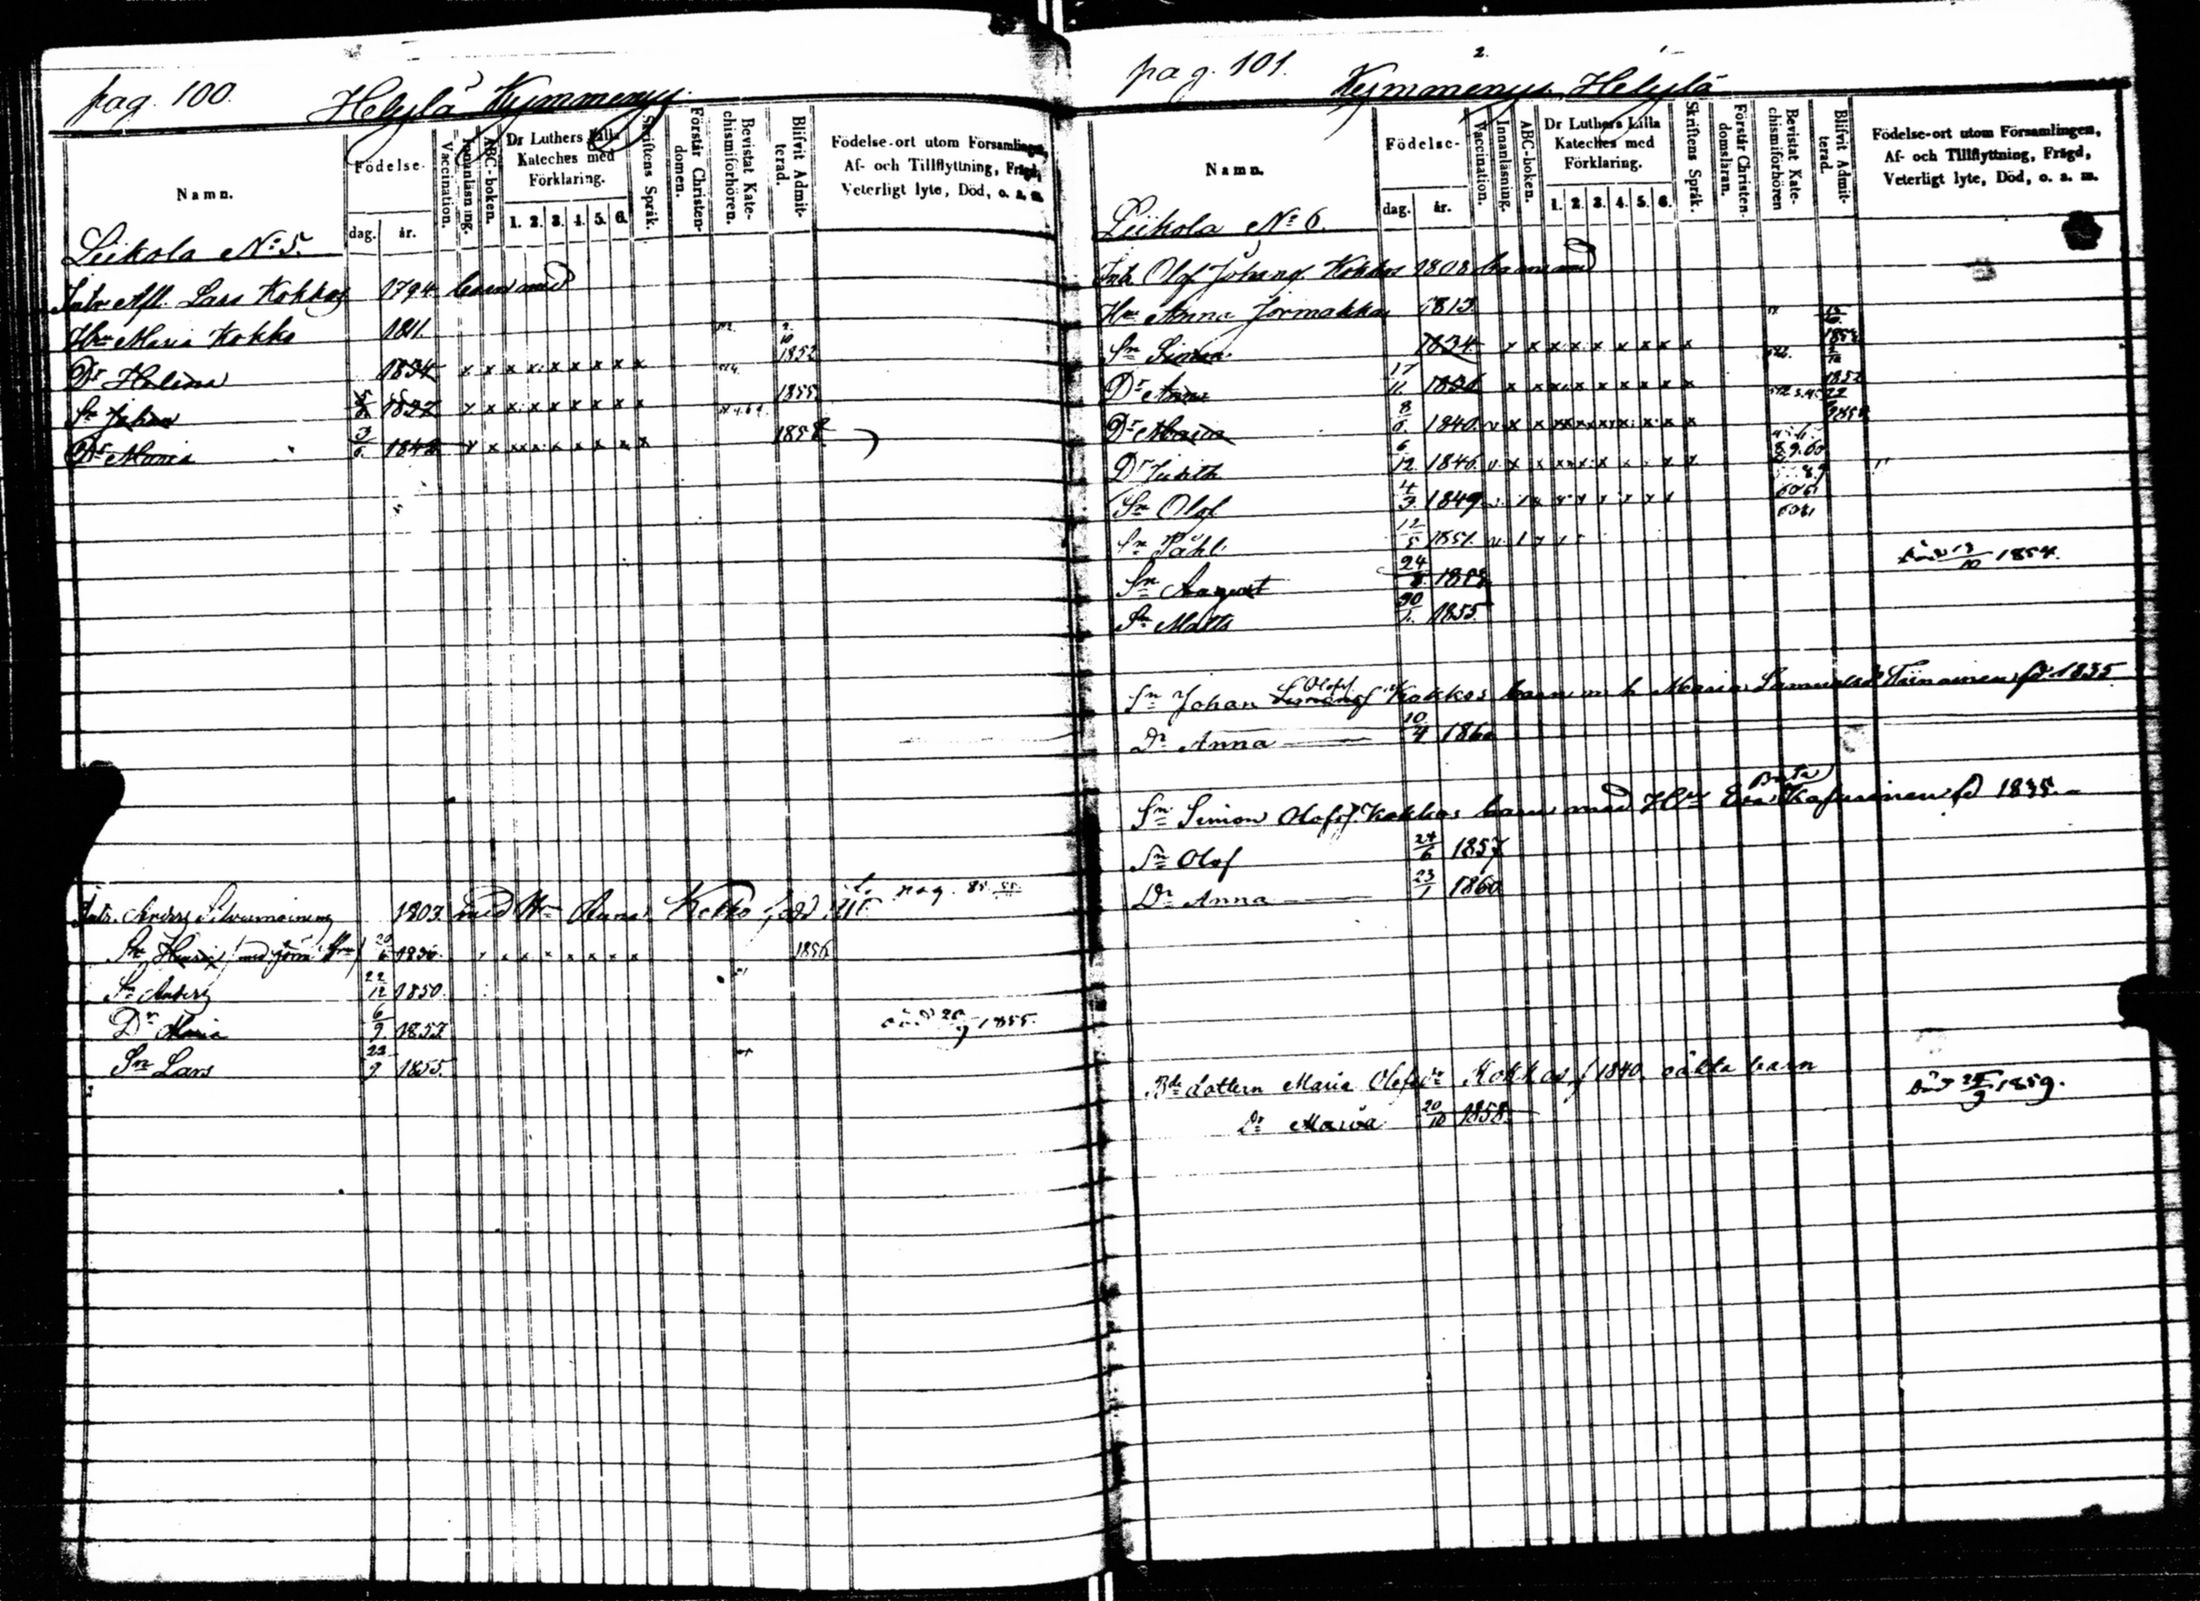 pag. 100.
Helylä Kymmeny
Namn.
Födelse-
dag. år.
Vaccination.
Innanläsning.
ABC-boken.
Dr Luthers Lilla
Kateches med
Förklaring.
1. 2. 3. 4. 5. 6.
Skriftens Språk.
Förstår Christen-
domen.
Bevistat Kate-
chismiförhören.
Blifvit Admit-
terad.
Födelse-ort utom Församlingen,
Af- och Tillflyttning, Frägd,
Veterligt lyte, Död, o. a. m.
Leikola No 5.
Lars Kokkoj 1794 barn med
Hu Maria Kokko 1811.
Dr Helena 1834 x x x x x x x x x 1852
Sn Johan 1837 x x x x x x x x x 1855
Dr Maria 3/6 1842 x x xx x x x x x 1858
Inh. Anders 1803. med Hu Anna Kokko född pag. 85
Sn Henrik 1836 x x x x x x x 1856
Sn Anders 22/12 1850.
Dr Maria 6/9 1852 död 20/9 1855.
Sn Lars 23/9 1855.
pag. 101.
2.
Kymmenys Helylä
Namn.
Födelse-
dag. år.
Vaccination.
Innanläsning.
ABC-boken.
Dr Luthers Lilla
Kateches med
Förklaring.
1. 2. 3. 4. 5. 6.
Skriftens Språk.
Förstår Christen-
domsläran.
Bevistat Kate-
chismiförhören
Blifvit Admit-
terad.
Födelse-ort utom Församlingen,
Af- och Tillflyttning, Frägd,
Veterligt lyte, Död, o. a. m.
Leikola No 6.
Inh Olof Johansf Kokkos 1808 barn med
Hu Anna Jormakka 1813.
Sn Simon 1834 x x x x x x x x x
Dr Anna 17/11 1836 x x x x x x x x x 1852
Dr Maria 8/6 1840 v x x xx x x x x x x
Dr Judith 6/12 1846. v. x x x x x
Sn Olof 4/3 1849
Sn Påhl 12/5 1851. v.
Sn August 24/8 1853 död 13/10 1854.
Sn Matts 30/1 1855.
Sn Johan Olofsf Kokkos barn m h Maria Samuelsd Tiinainen fd 1835
Dr Anna 10/4 1860
Sn Simon Olofsf Kokkos barn med Hu Beata fd 1835.
Sn Olof 24/6 1857
Dr Anna 23/1 1860
dottern Maria Olofsdr Kokkos f 1840. oäkta barn
Dr Maria 20/10 1858 död 25/9 1859.